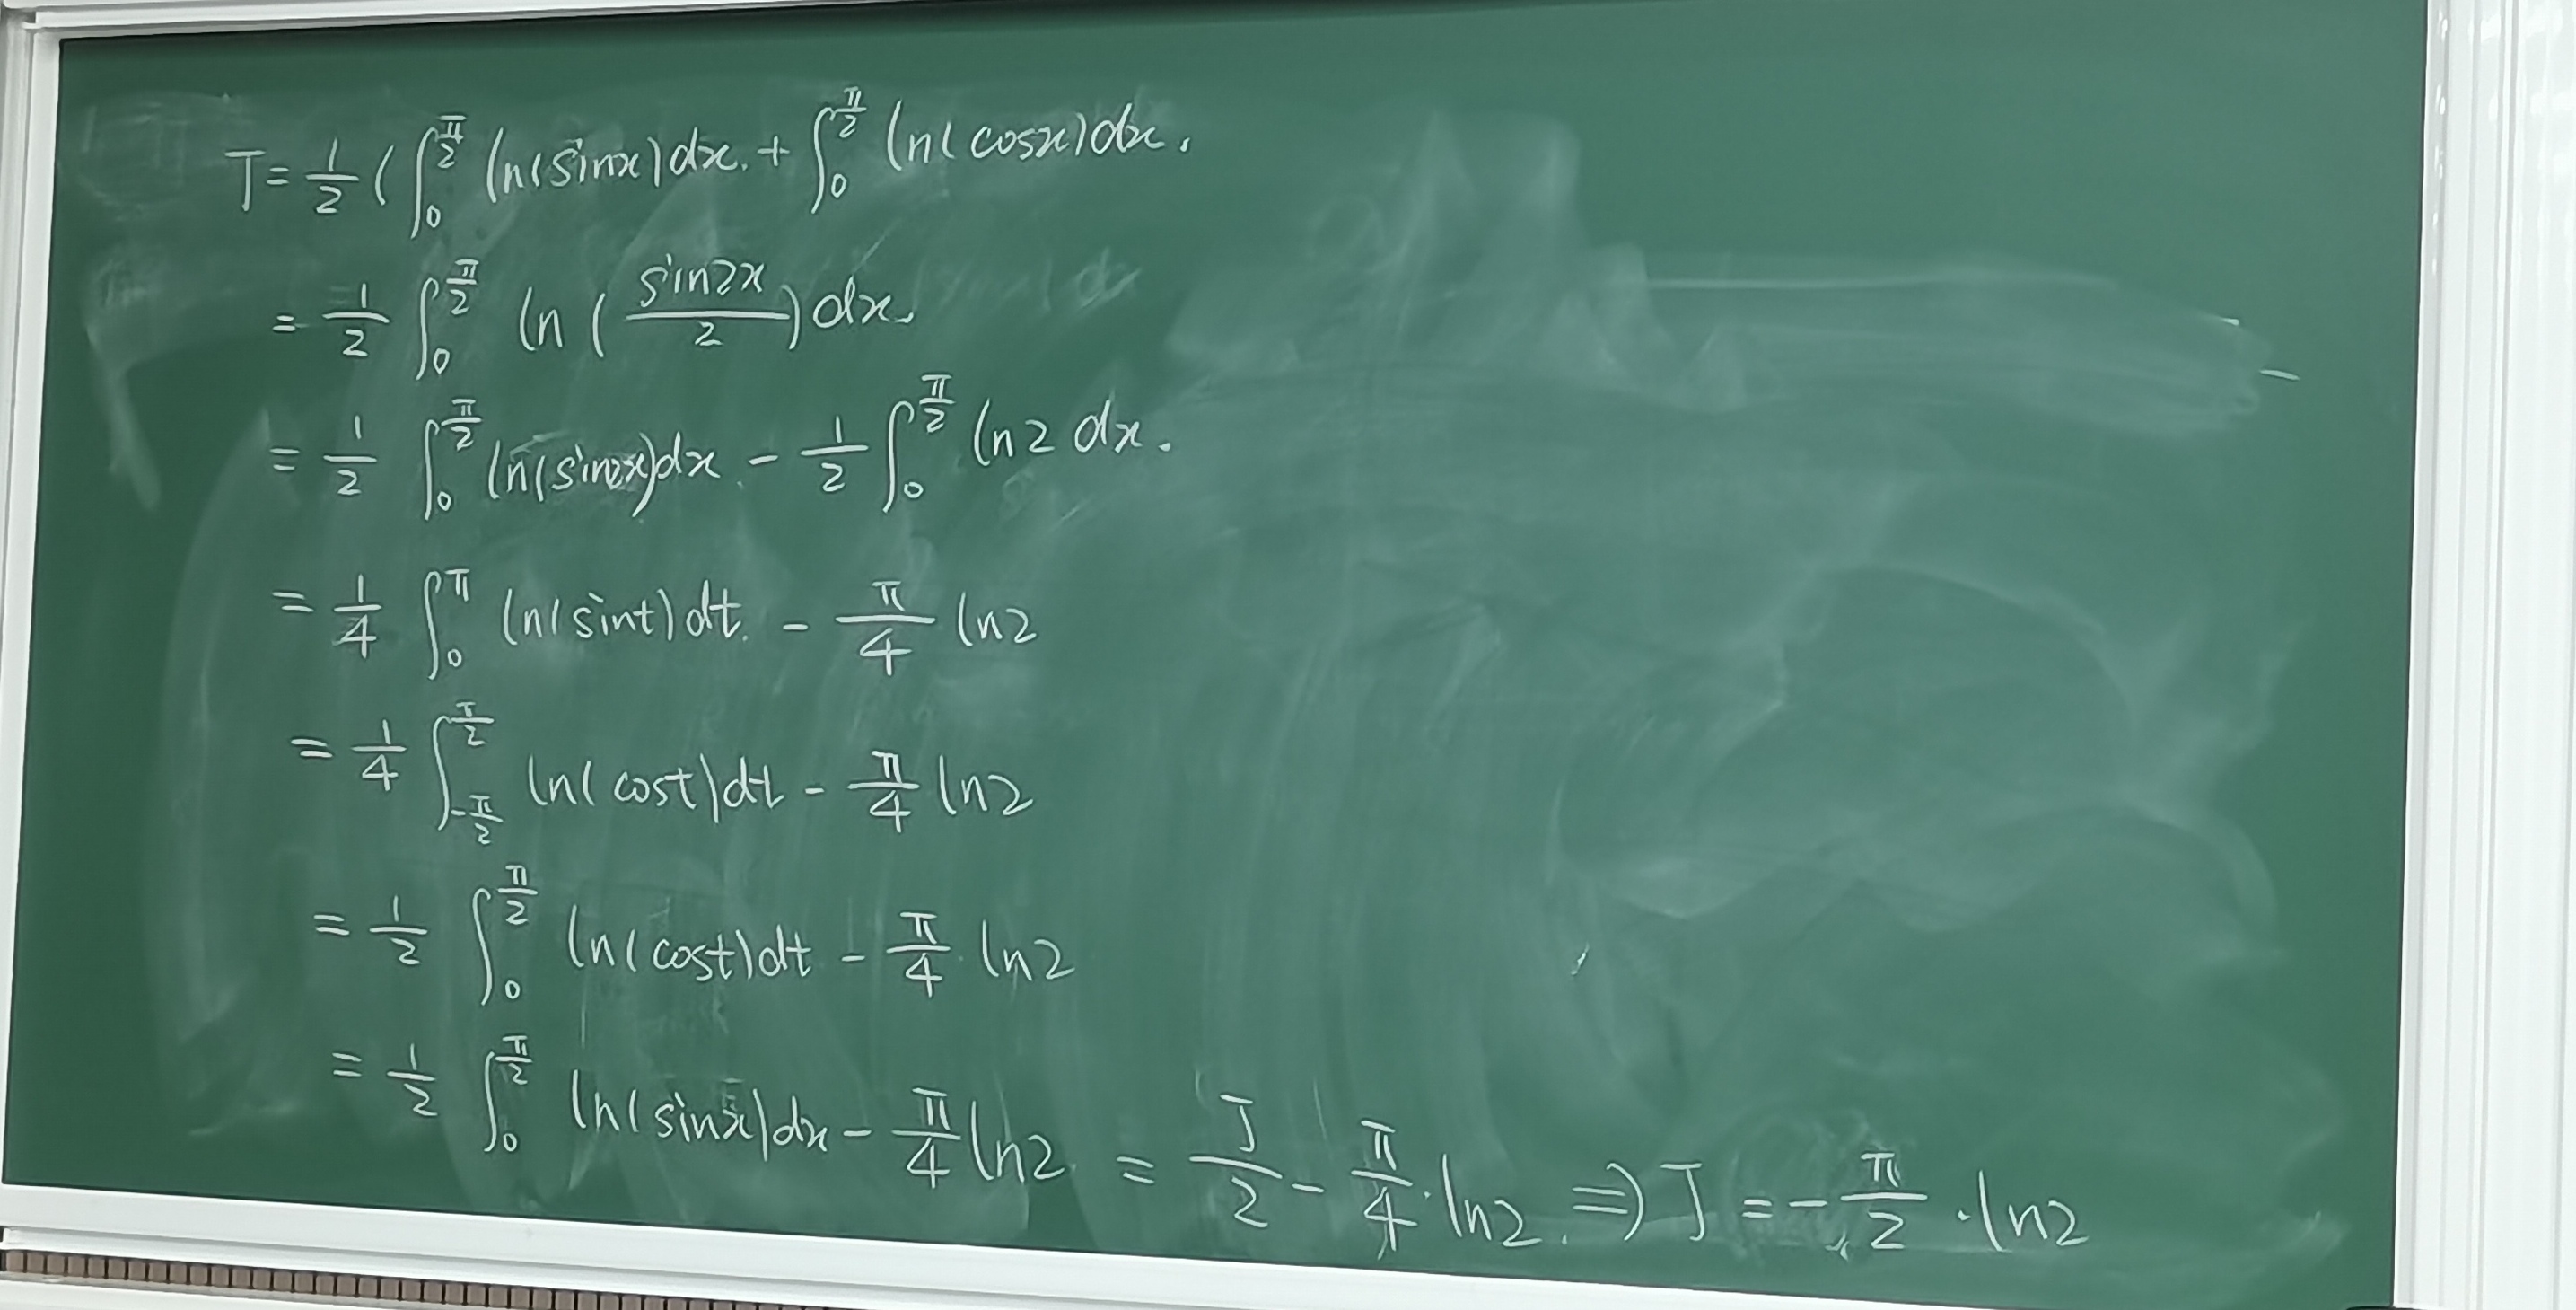 J = \frac{1}{2} ( \int_0^{\frac{\pi}{2}} ln(sinx)dx. + \int_0^{\frac{\pi}{2}} ln(cosx)dx.
= \frac{1}{2} \int_0^{\frac{\pi}{2}} ln(\frac{sin2x}{2})dx.
= \frac{1}{2} \int_0^{\frac{\pi}{2}} ln(sin2x)dx. - \frac{1}{2} \int_0^{\frac{\pi}{2}} ln2 dx.
= \frac{1}{4} \int_0^{\pi} ln(sint)dt. - \frac{\pi}{4} ln2
= \frac{1}{4} \int_{-\frac{\pi}{2}}^{\frac{\pi}{2}} ln(cost)dt - \frac{\pi}{4} ln2
= \frac{1}{2} \int_0^{\frac{\pi}{2}} ln(cost)dt - \frac{\pi}{4} ln2
= \frac{1}{2} \int_0^{\frac{\pi}{2}} ln(sinx)dx - \frac{\pi}{4} ln2. = \frac{J}{2} - \frac{\pi}{4} \cdot ln2. \Rightarrow J = -\frac{\pi}{2} \cdot ln2